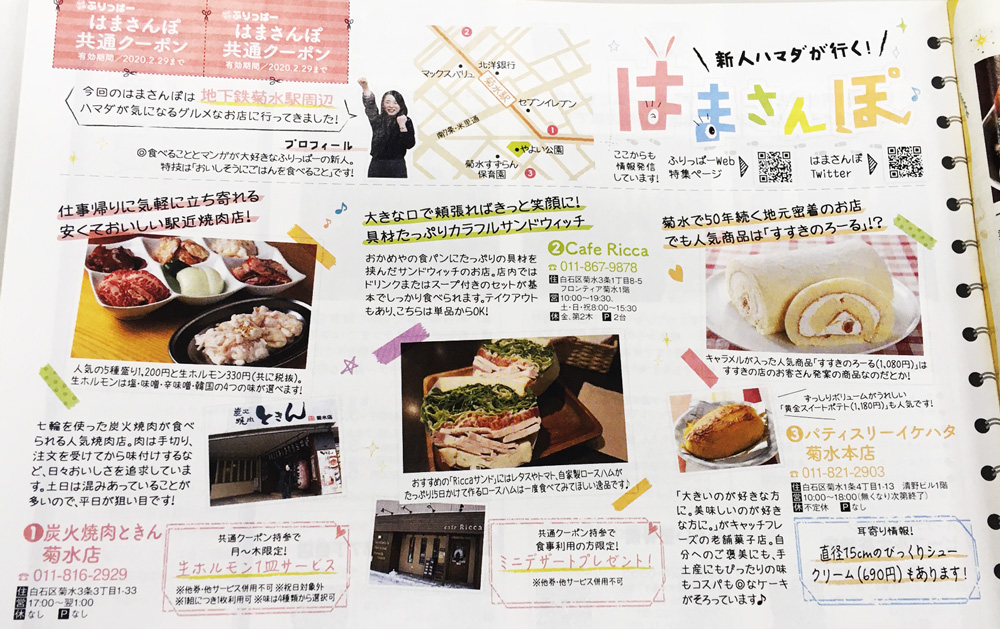 ふりっぱー
はまさんぽ
共通クーポン
有効期間／2020.2.29まで
ふりっぱー
はまさんぽ
共通クーポン
有効期間／2020.2.29まで
今回のはまさんぽは 地下鉄菊水駅周辺
ハマダが気になるグルメなお店に行ってきました!
プロフィール
◎食べることとマンガが大好きなふりっぱーの新人。
特技は「おいしそうにごはんを食べること」です!
2
マックスバリュ
北洋銀行
菊水駅
セブンイレブン
南7条・米里通
1
やよい公園
菊水すずらん
保育園
3
新人ハマダが行く!
はまさんぽ
ここからも
情報発信
しています!
ふりっぱーWeb
特集ページ
はまさんぽ
Twitter
仕事帰りに気軽に立ち寄れる
安くておいしい駅近焼肉店!
人気の5種盛り1,200円と生ホルモン330円(共に税抜)。
生ホルモンは塩・味噌・辛味噌・韓国の4つの味が選べます!
七輪を使った炭火焼肉が食べ
られる人気焼肉店。肉は手切り、
注文を受けてから味付けするな
ど、日々おいしさを追求していま
す。土日は混みあっていることが
多いので、平日が狙い目です!
炭火焼肉 ときん 菊水店
1 炭火焼肉ときん
菊水店
☎011-816-2929
住 白石区菊水3条3丁目1-33
営 17:00～翌1:00
休 なし P なし
共通クーポン持参で
月～木限定!
生ホルモン1皿サービス
※他券・他サービス併用不可 ※祝日対象外
※1組につき1枚利用可 ※味は4種類から選択可
大きな口で頬張ればきっと笑顔に!
具材たっぷりカラフルサンドウィッチ
おかめやの食パンにたっぷりの具材を
挟んだサンドウィッチのお店。店内では
ドリンクまたはスープ付きのセットが基
本でしっかり食べられます。テイクアウト
もあり、こちらは単品からOK!
2 Cafe Ricca
☎011-867-9878
住 白石区菊水3条1丁目8-5
フロンティア菊水1階
営 10:00～19:30、
土・日・祝8:00～15:30
休 金、第2木 P 2台
おすすめの「Riccaサンド」にはレタスやトマト、自家製ロースハムが
たっぷり!5日かけて作るロースハムは一度食べてみてほしい逸品です♪
cafe Ricca
共通クーポン持参で
食事利用の方限定!
ミニデザートプレゼント!
※他券・他サービス併用不可
菊水で50年続く地元密着のお店
でも人気商品は「すすきのろーる」!?
キャラメルが入った人気商品「すすきのろーる(1,080円)」は
すすきの店のお客さん発案の商品なのだとか!
ずっしりボリュームがうれしい
「黄金スイートポテト(1,180円)」も人気です!
3 パティスリーイケハタ
菊水本店
☎011-821-2903
住 白石区菊水1条4丁目1-13 清野ビル1階
営 10:00～18:00(無くなり次第終了)
休 不定休 P なし
「大きいのが好きな方
に。美味しいのが好き
な方に。」がキャッチフレ
ーズの老舗菓子店。自
分へのご褒美にも、手
土産にもぴったりの味
もコスパも◎なケーキ
がそろっています♪
耳寄り情報!
直径15cmのびっくりシュー
クリーム(690円)もあります!